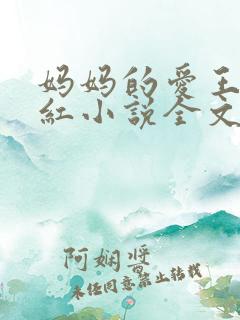 妈妈的爱王
红小说全文
阿娴酱
未经同意禁止转载